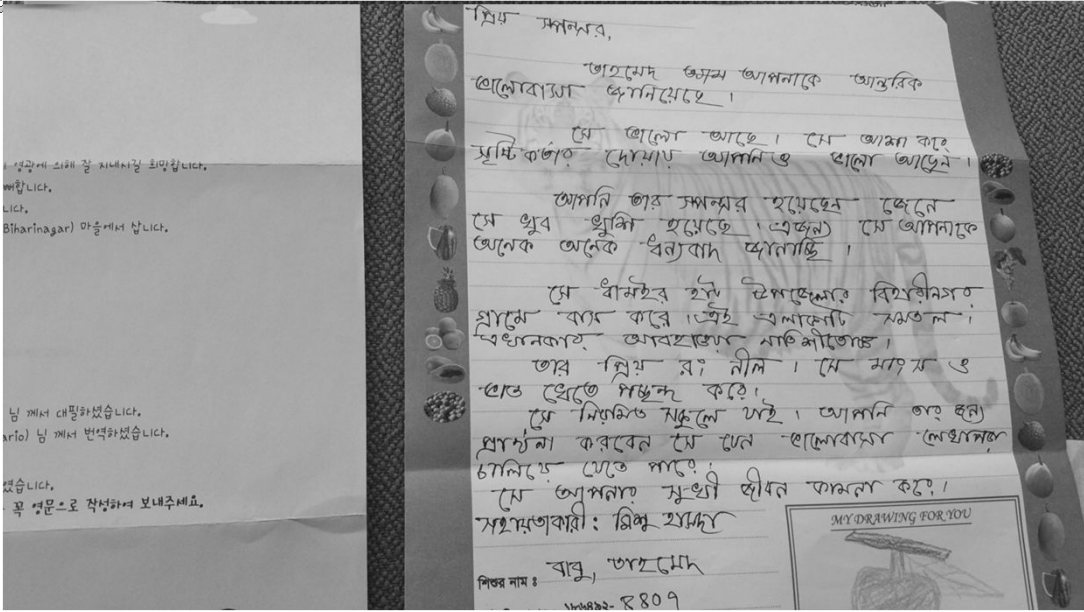 영광에 의해 잘 지내시길 희망합니다.
합니다.
니다.
Biharinagar) 마을에서 삽니다.
님 께서 대필하셨습니다.
ario) 님 께서 번역하셨습니다.
였습니다.
꼭 영문으로 작성하여 보내주세요.
প্রিয় স্পন্সর,
তাহমেদ আপনাকে আন্তরিক
ভালোবাসা জানিয়েছে।
সে ভালো আছে। সে আশা করে
সৃষ্টি কর্তার দোয়ায় আপনি ও ভালো আছেন।
আপনি তার স্পন্সর হয়েছেন জেনে
সে খুব খুশি হয়েছে। এজন্য সে আপনাকে
অনেক অনেক ধন্যবাদ জানাচ্ছি।
সে ধামইর হাট উপজেলার বিহারীনগর
গ্রামে বাস করে। এই এলাকাটি সমতল।
এখানকার আবহাওয়া নাতিশীতোষ্ণ।
তার প্রিয় রং নীল। সে মাংস ও
ভাত খেতে পছন্দ করে।
সে নিয়মিত স্কুলে যাই। আপনি তার জন্য
প্রার্থনা করবেন সে যেন ভালোবাসা লেখাপড়া
চালিয়ে যেতে পারে।
সে আপনার সুখী জীবন কামনা করে।
সহায়তাকারী: মিশু হাসদা
বাবু, তাহমেদ
শিশুর নাম :
8809
MY DRAWING FOR YOU